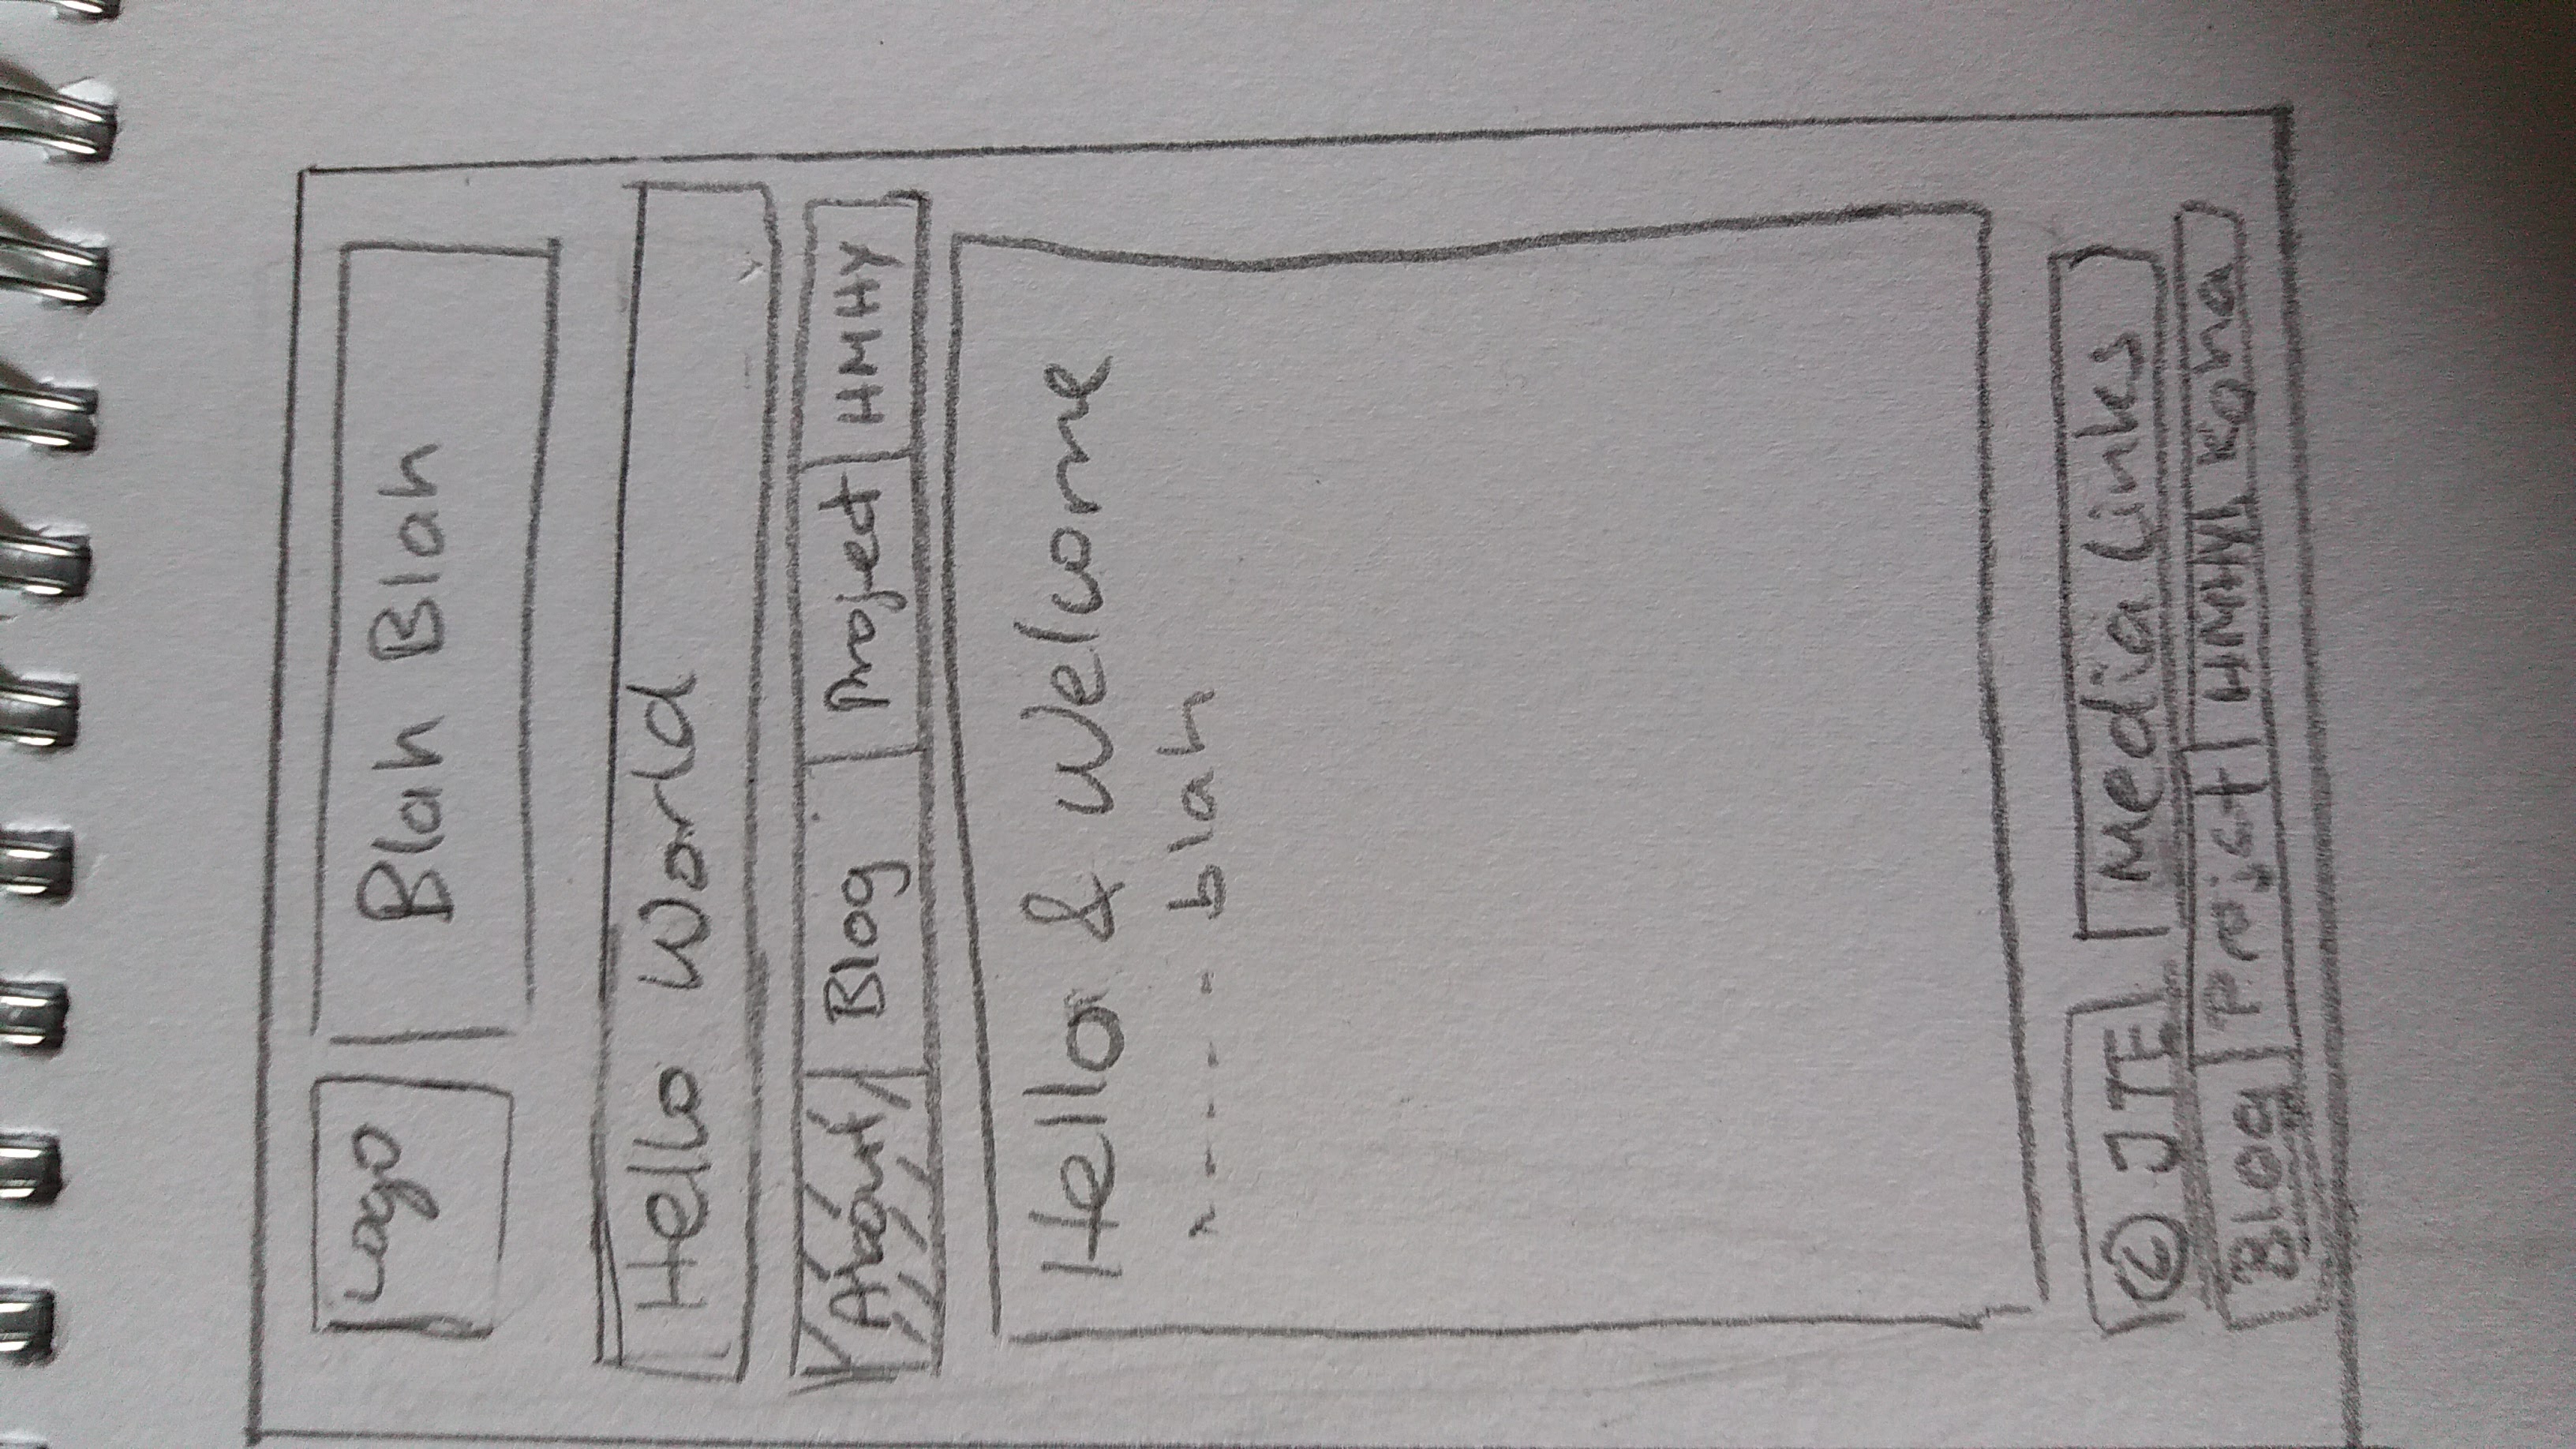 Logo
Blah Blah
Hello World
About Blog Project HMHY
Hello & Welcome
blah
© JTE Media Links
Blog Projct HMHY Koha